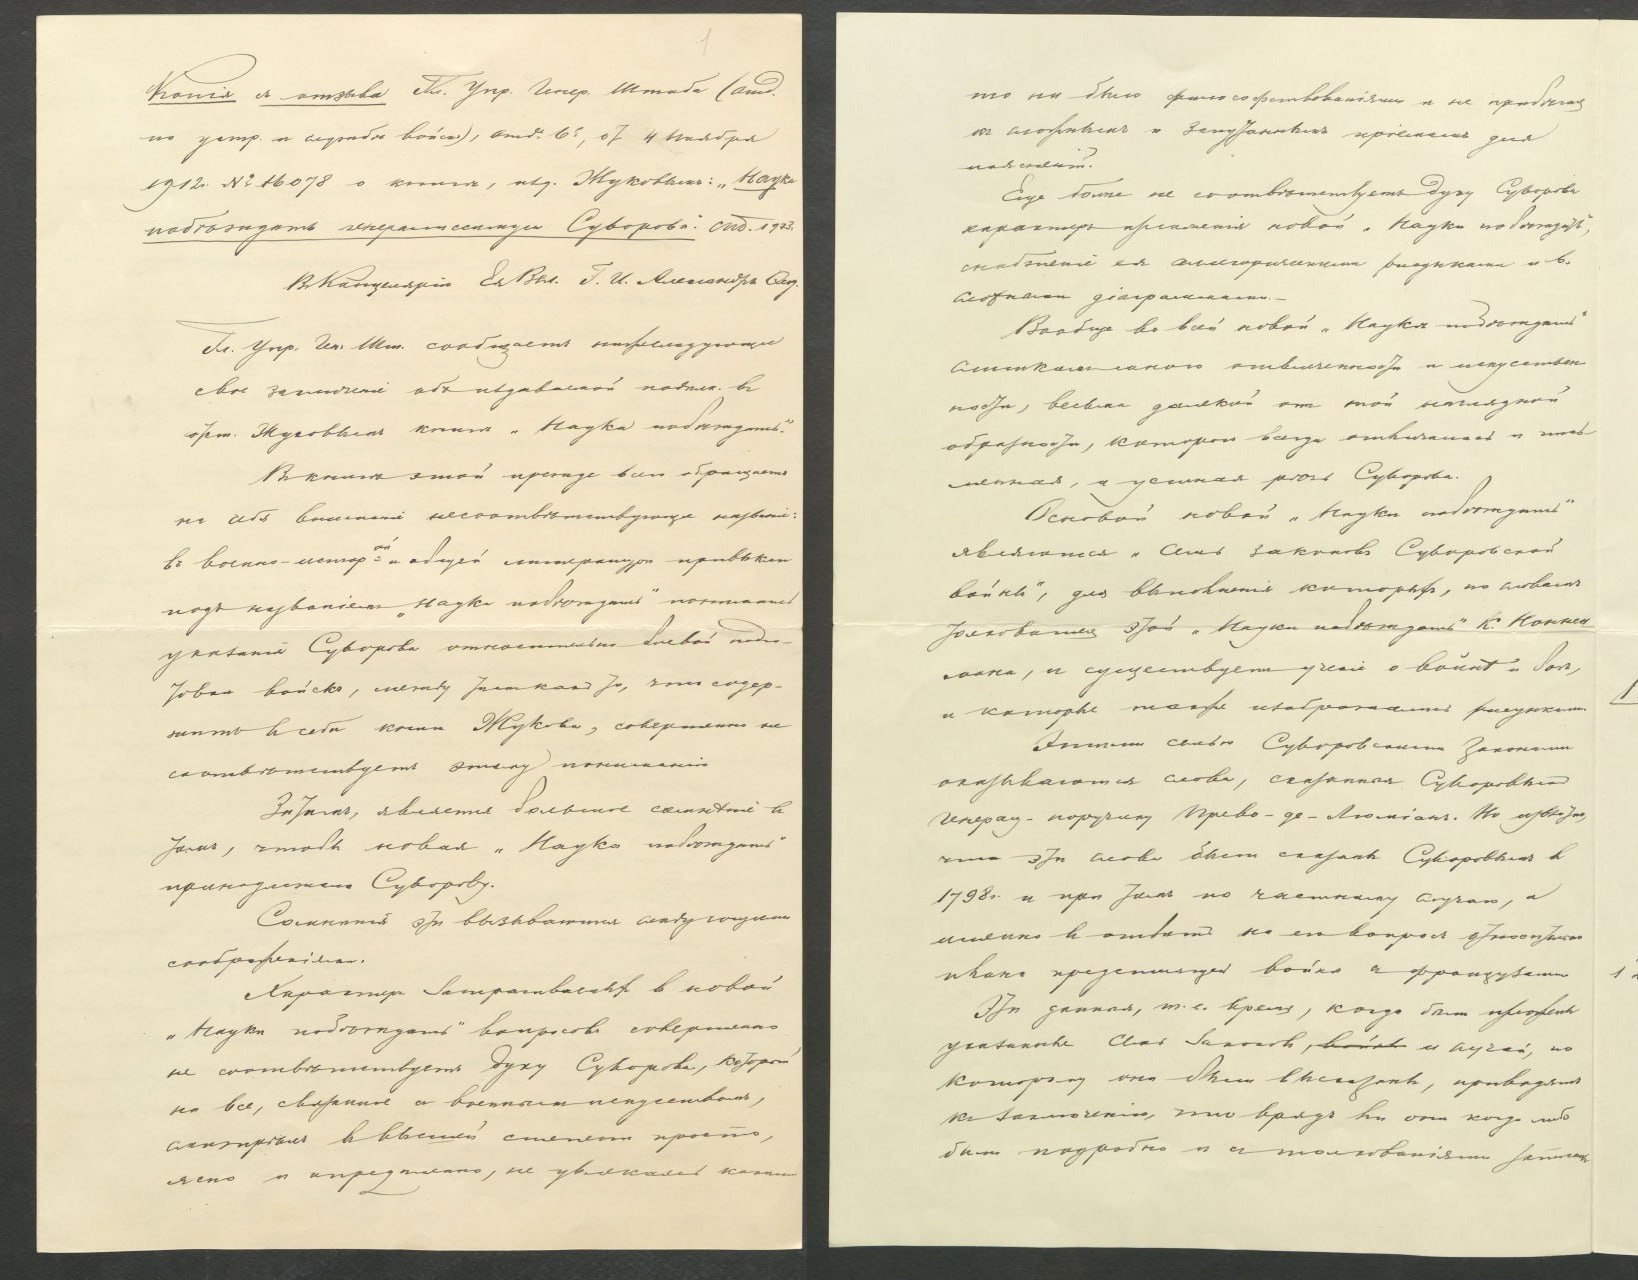 1
Копія съ отзыва Гл. Упр. Генер. Штаба (отд.
по устр. и службѣ войскъ), отд. 6ѣ, от 4 Ноября
1912г. № 16078 о книгѣ, изд. Жуковымъ: „Наука
побѣждать генералиссимуса Суворова". Спб. 1913.
Въ Канцелярію Ея Выс. Г. И. Александры Ѳед.
Гл. Упр. Ген. Шт. сообщаетъ нижеслѣдующее
свое заключеніе объ издаваемой подполк. въ
отст. Жуковымъ книгѣ „Наука побѣждать."
Въ книгѣ этой прежде всего обращаетъ
на себя вниманіе несоотвѣтствующее названіе:
въ военно-истор-ой и общей литературѣ привыкли
подъ названіемъ „Наука побѣждать" понимать
указанія Суворова относительно боевой подго-
товки войскъ, между тѣмъ какъ то, что содер-
житъ въ себѣ книга Жукова, совершенно не
соотвѣтствуетъ этому пониманію
Затѣмъ, является большое сомнѣніе въ
томъ, чтобы новая „Наука побѣждать"
принадлежала Суворову.
Сомнѣнія эти вызываются слѣдующими
соображеніями.
Характеръ затрагиваемыхъ въ новой
„Наукѣ побѣждать" вопросовъ совершенно
не соотвѣтствуетъ духу Суворова, который
на все, связанное съ военнымъ искусствомъ,
смотрѣлъ въ высшей степени просто,
ясно и опредѣленно, не увлекаясь какимъ
то ни было философствованіямъ и не прибѣгая
къ сложнымъ и запутаннымъ пріемамъ для
поясненій.
Еще болѣе не соотвѣтствуетъ духу Суворова
характеръ изложенія новой „Науки побѣждать",
снабженіе ея аллегорическими рисунками и въ.
сложными діаграммами.—
Вообще во всей новой „Наукѣ побѣждать"
слишкомъ много отвлеченности и искусствен
ности, весьма далекой отъ той наглядной
образности, которою всегда отличалась и пись
менная, и устная рѣчь Суворова.
Основой новой „Науки побѣждать"
являются „Семь законовъ Суворовской
войны", для выполненія которыхъ, по словамъ
толкователя этой „Науки побѣждать" К. Коннел
лана, и существуетъ ученіе о войнѣ и боѣ,
и которые также изображаются рисункомъ.
Этими семью Суворовскими законами
оказываются слова, сказанныя Суворовымъ
генералъ-поручику Прево-де-Люміану. Но извѣстно,
что эти слова были сказаны Суворовымъ въ
1798г. и при томъ по частному случаю, а
именно въ отвѣтъ на его вопросъ относительно
плана предстоящей войны съ французами
Эти данныя, т.е. время, когда были изложены
указанные семь законовъ, войны и случай, по
которому они были высказаны, приводятъ
къ заключенію, что врядъ ли они когда либо
были подробно и съ толкованіями записаны